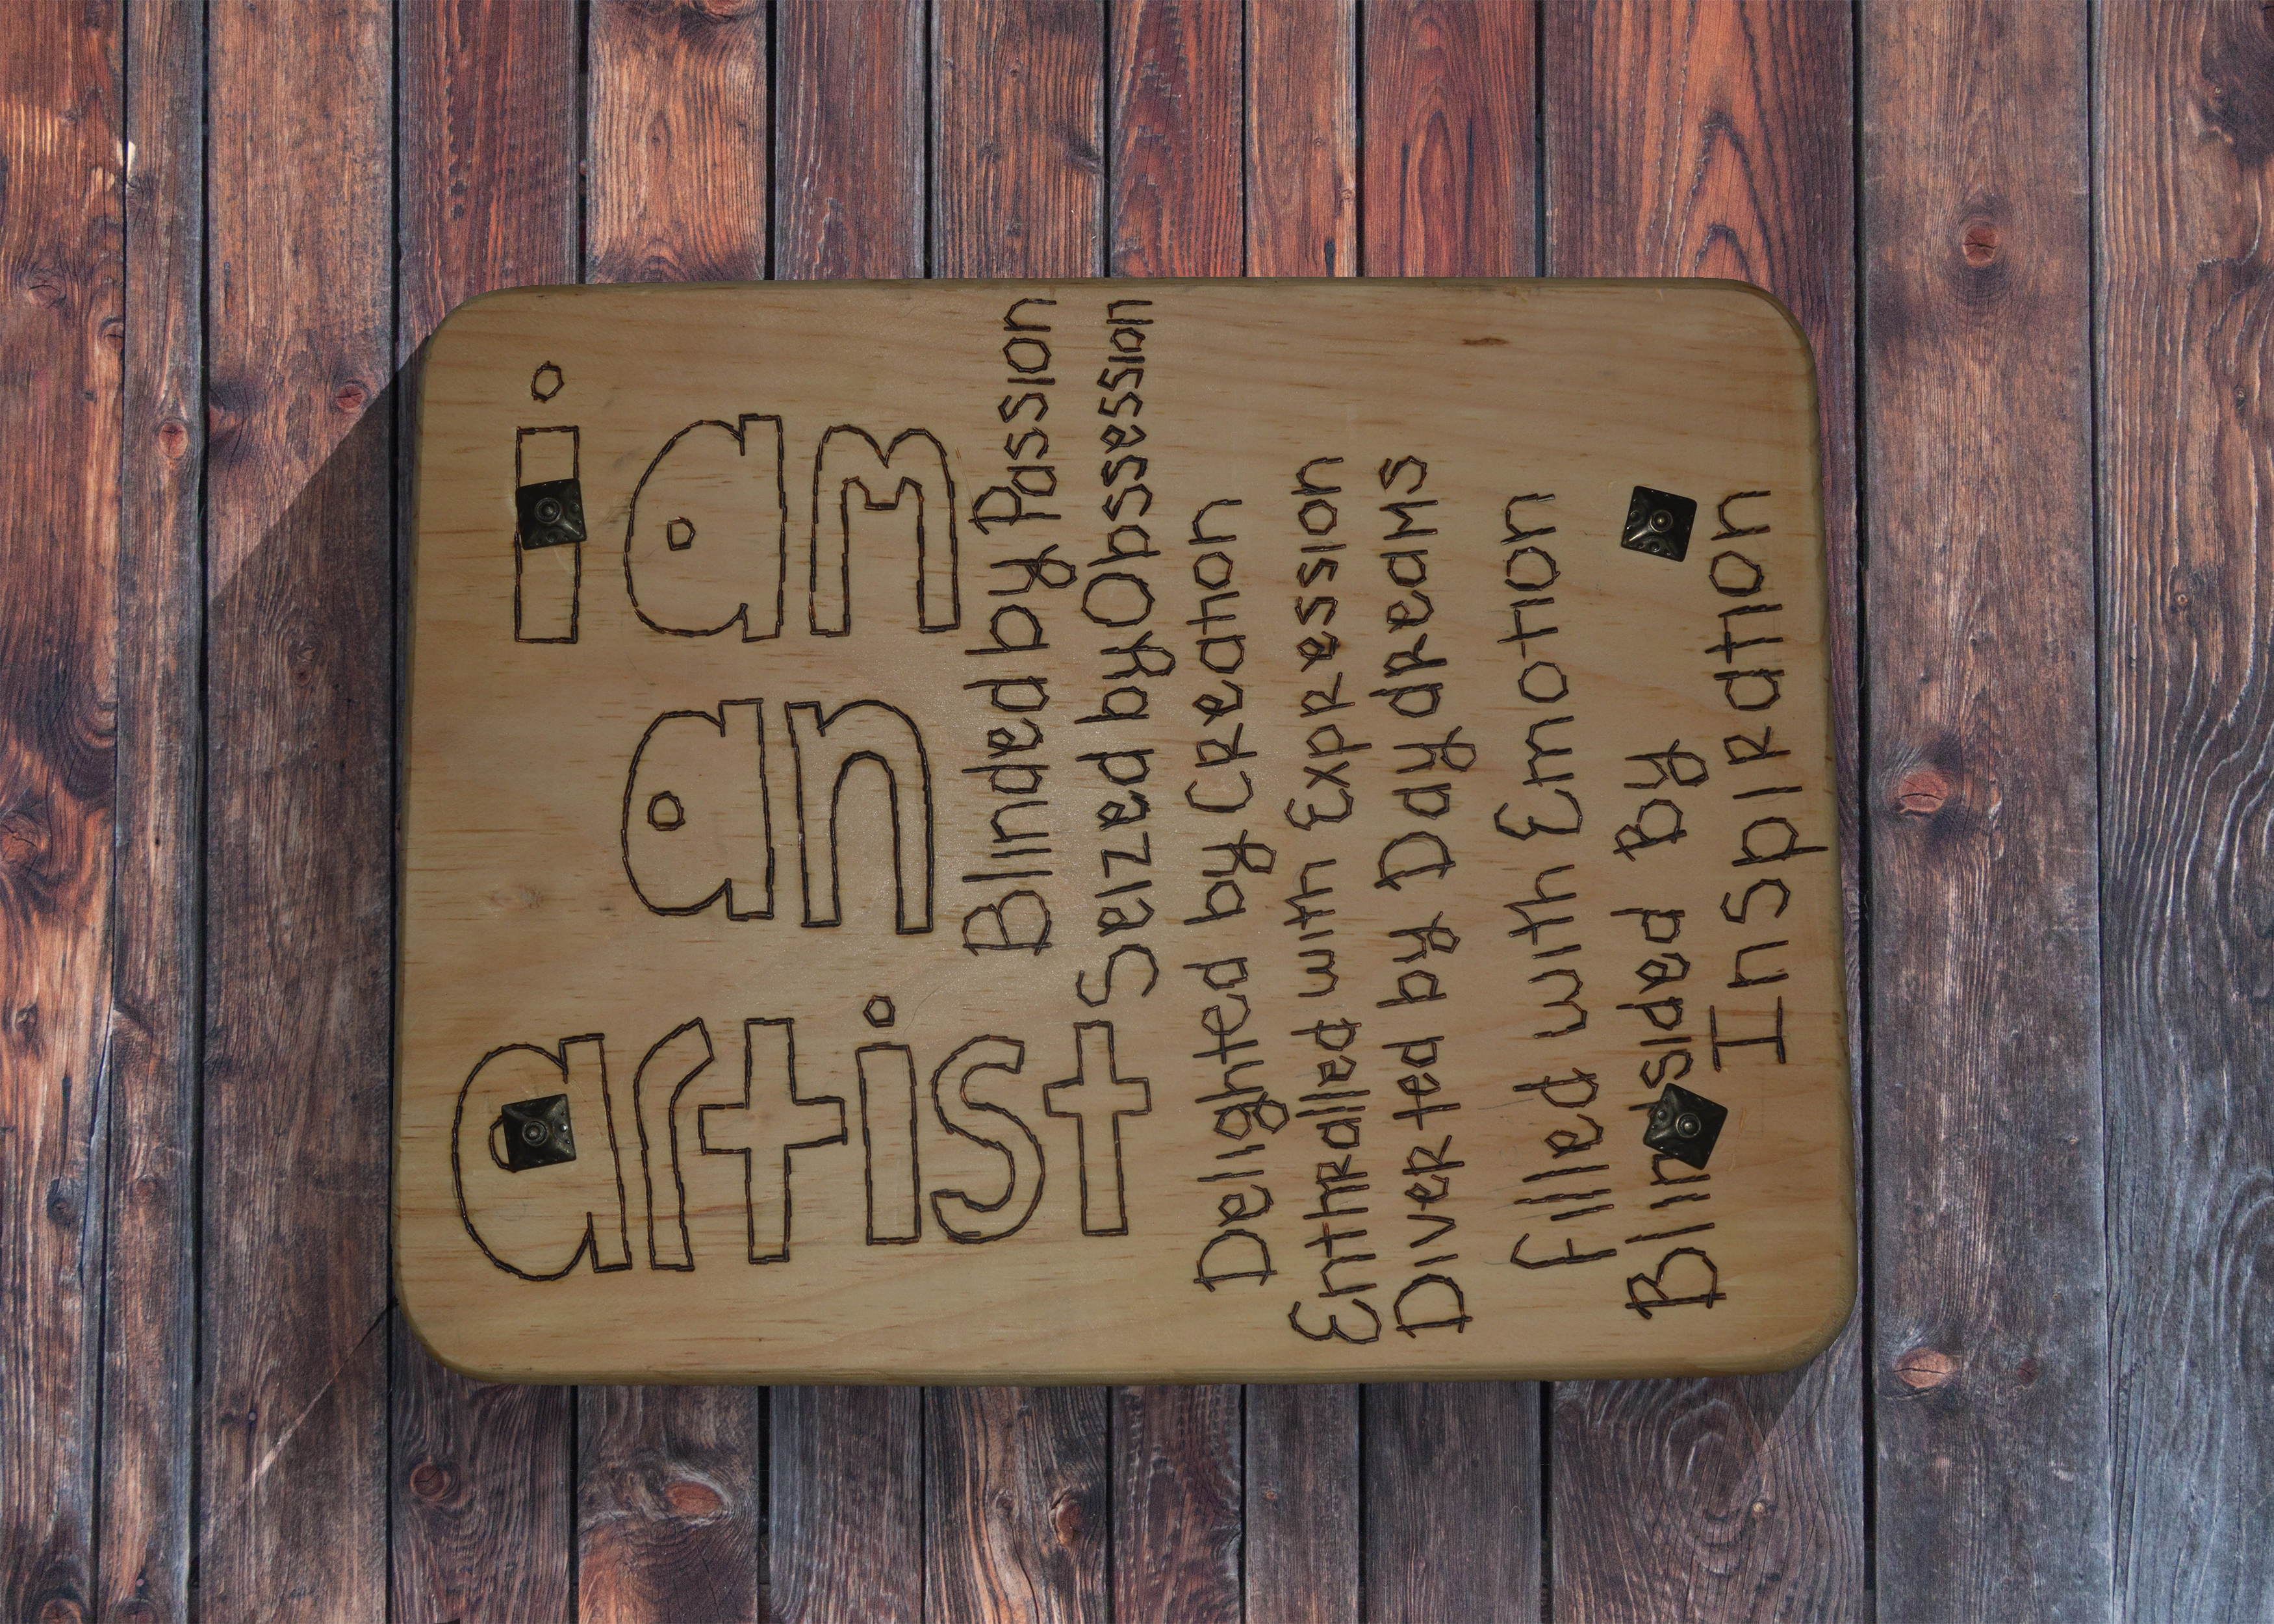 i am
an
artist
Blinded by Passion
Seized by Obsession
Delighted by Creation
Enthralled with Expression
Diverted by Day dreams
filled with Emotion
Blindsided By
Inspiration